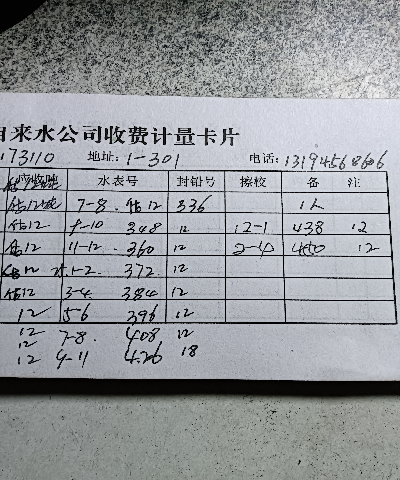 自来水公司收费计量卡片
173110 地址: 1-301 电话: 13194568606
水表号 封铅号 擦校 备 注
估12吨 7-8. 估12 336 1人
估12 9-10 348 12 12-1 438 12
估12 11-12 360 12 2-4 450 12
估12 1-2 372 12
估12 3-4 384 12
12 5-6 396 12
12
12 7-8. 408 12
12 9-11 426 18